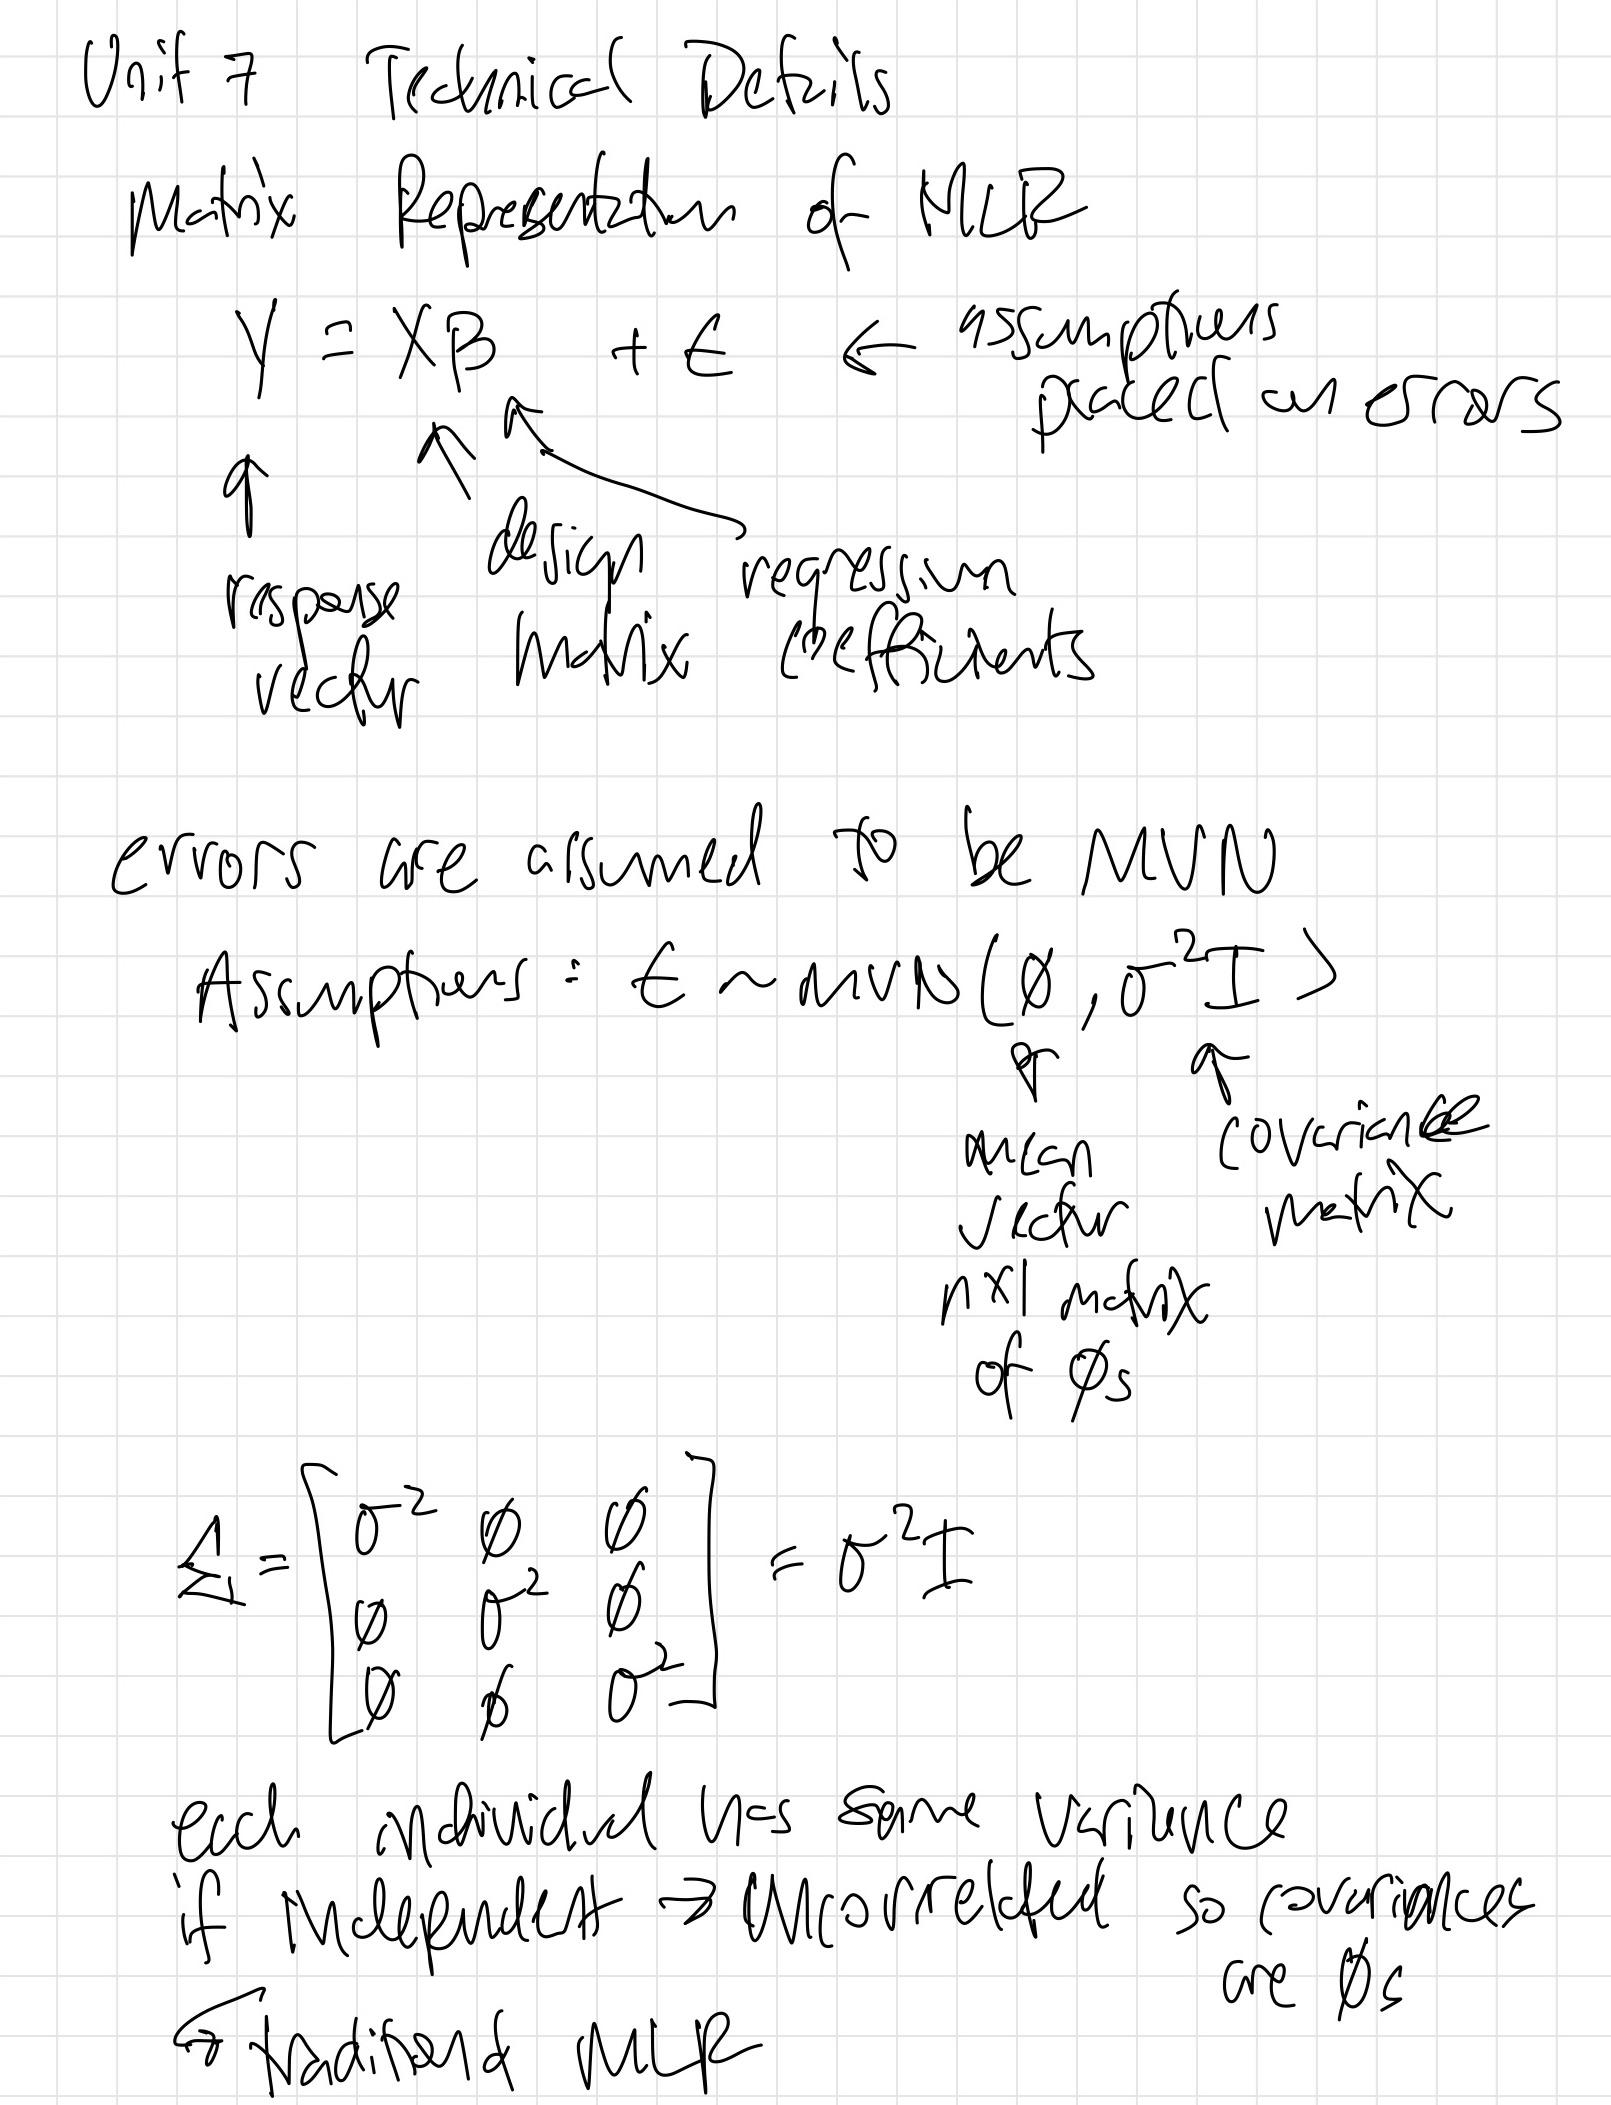 Unit 7 Technical Details
Matrix Representation of MLR
Y = Xβ + ε ← assumptions
placed on errors
↑ response vector
↑ design matrix
↑ regression coefficients
errors are assumed to be MVN
Assumptions: ε ~ MVN(∅, σ²I)
↑ mean vector
n×1 matrix
of ∅s
↑ covariance
matrix
Σ = [σ² ∅ ∅
∅ σ² ∅
∅ ∅ σ²] = σ²I
each individual has same variance
if independent → uncorrelated so covariances
are ∅s
↪ traditional MLR